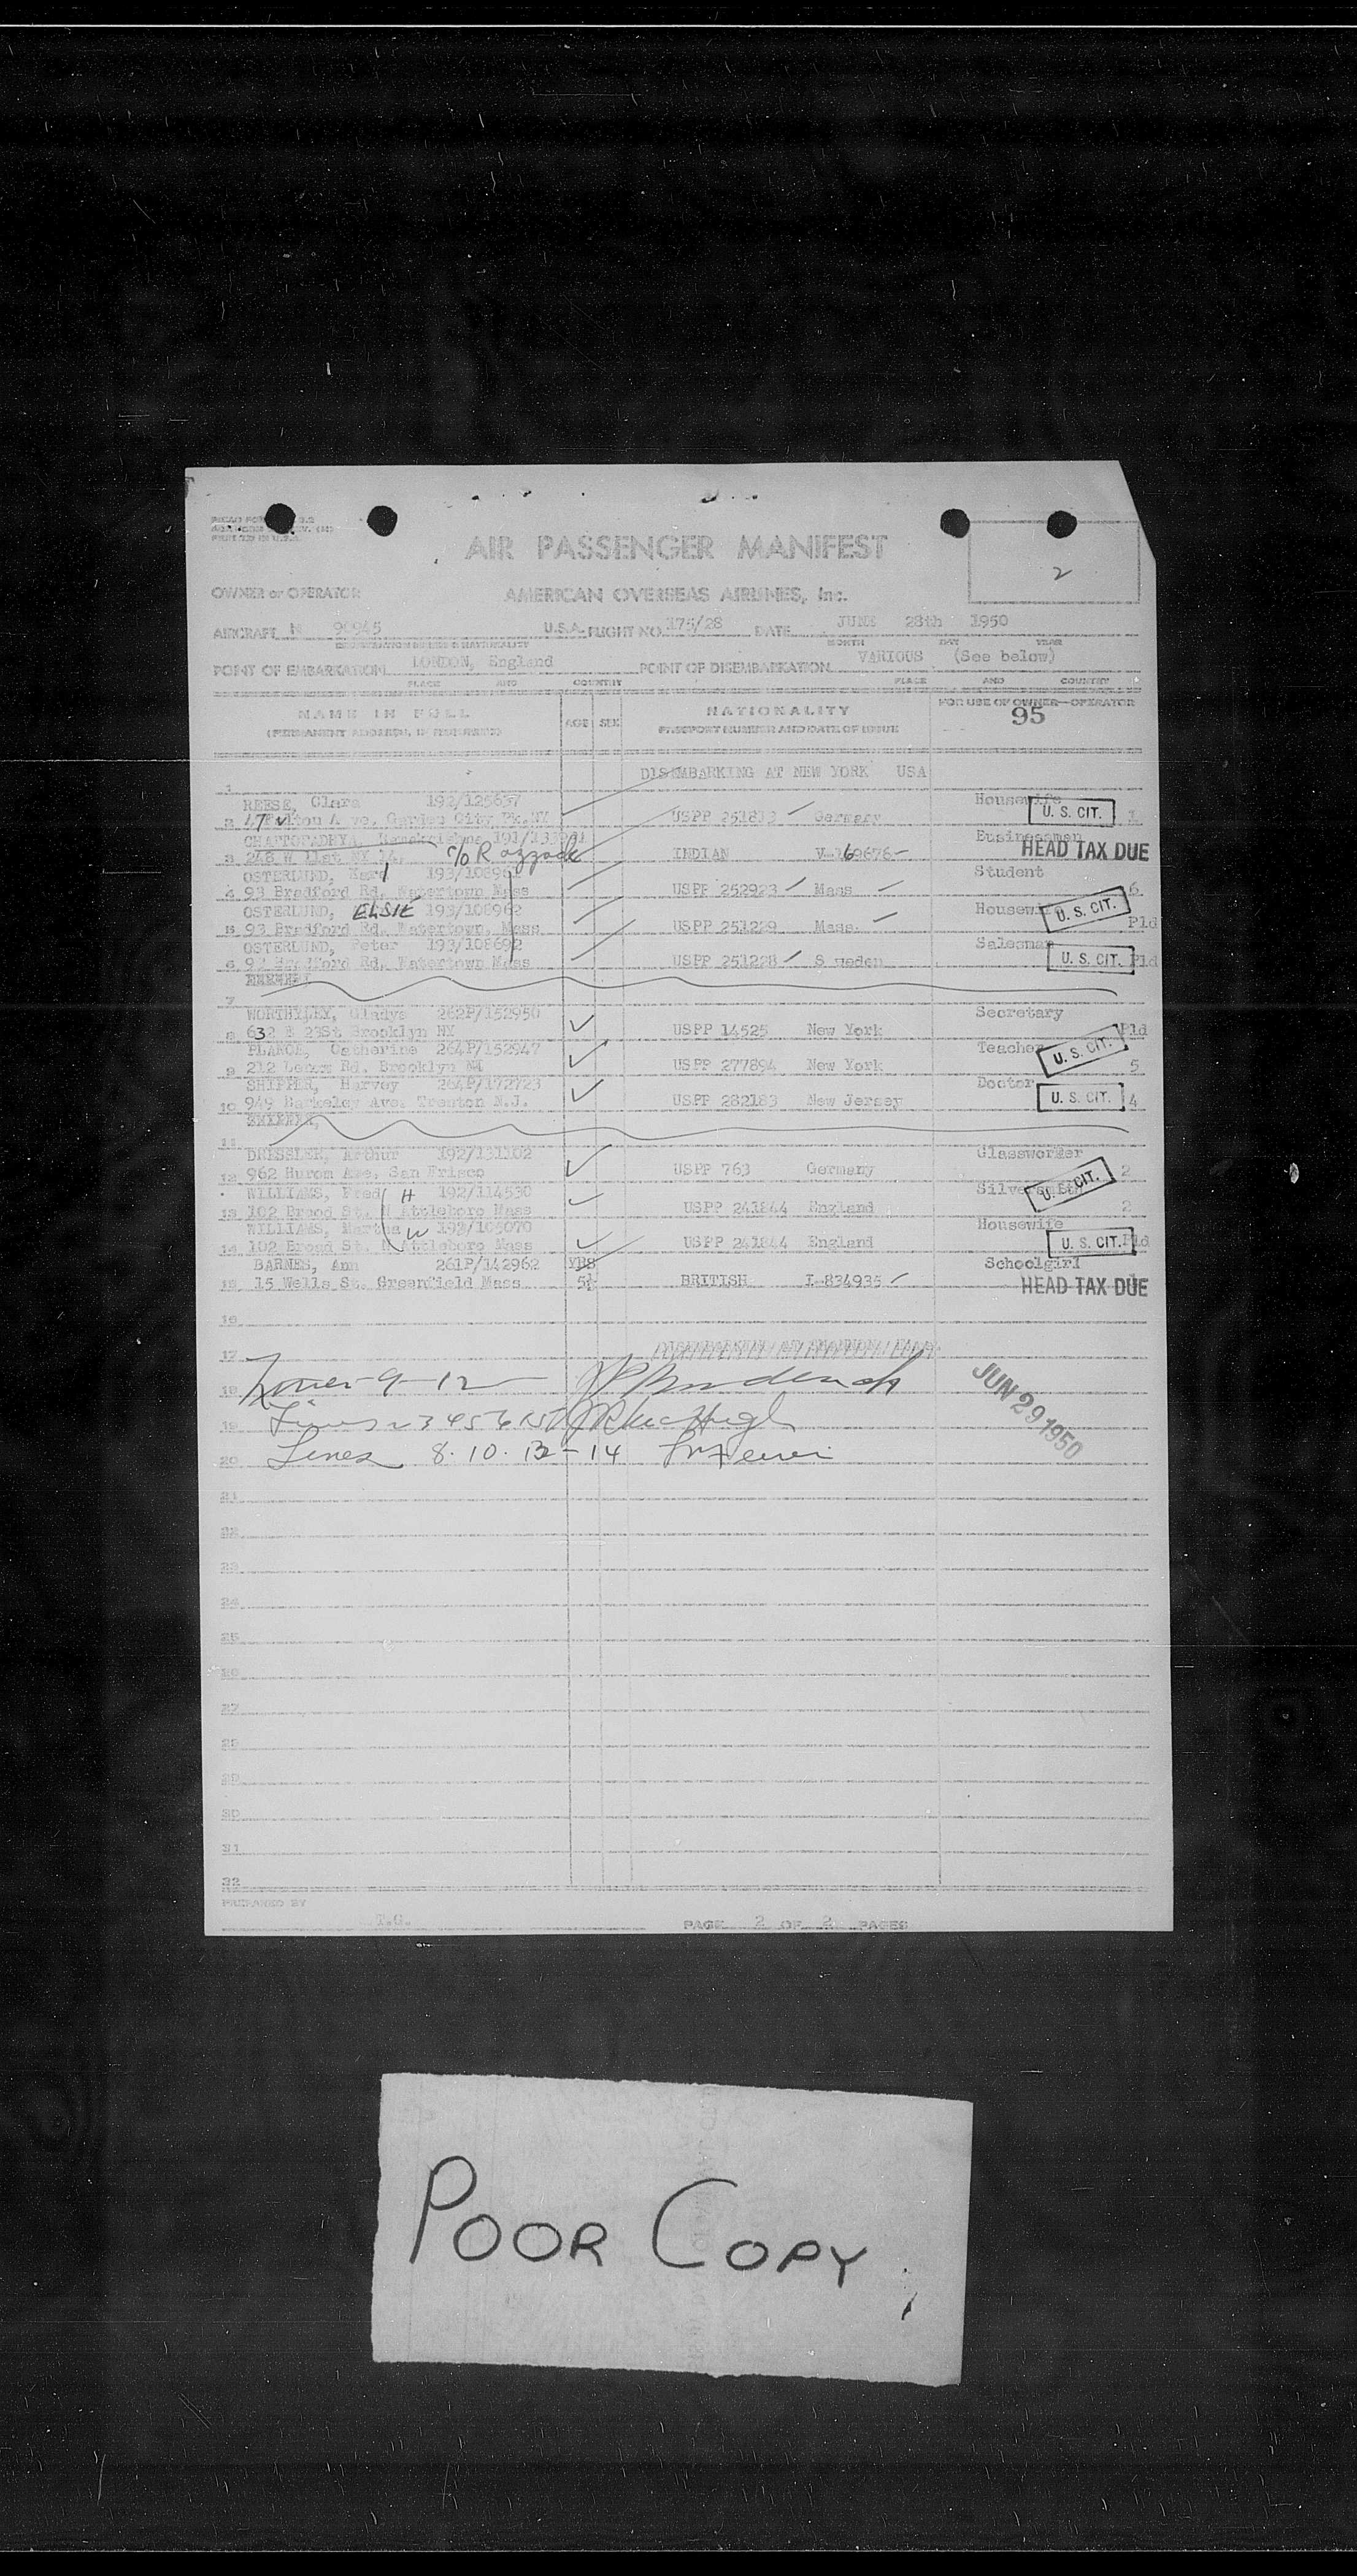 AIR PASSENGER MANIFEST
2
OWNER or OPERATOR AMERICAN OVERSEAS AIRLINES, Inc.
AIRCRAFT N 90945 U.S.A. FLIGHT NO. 175/28 DATE JUNE 28th 1950
MONTH DAY YEAR
POINT OF EMBARKATION LONDON, England POINT OF DISEMBARKATION VARIOUS (See below)
PLACE AND COUNTRY PLACE AND COUNTRY
NAME IN FULL AGE SEX NATIONALITY FOR USE OF OWNER—OPERATOR
(PERMANENT ADDRESS, IF REQUIRED) PASSPORT NUMBER AND DATE OF ISSUE 95
1 DISEMBARKING AT NEW YORK USA
REESE, Clara 192/125637 Housewife
2 Garden City Pk. NY USPP 251813 Germany U. S. CIT. 1
Businessman
3 248 W NY c/o R INDIAN HEAD TAX DUE
OSTERLUND, Karl 193/108961 Student
4 93 Bradford Rd. Watertown Mass USPP 252923 Mass 6
OSTERLUND, ELSIE 193/108962 Housewife
5 93 Bradford Rd. Watertown, Mass USPP 251229 Mass. U. S. CIT. Pld
OSTERLUND, Peter 193/108692 Salesman
6 93 Bradford Rd, Watertown Mass USPP 251228 Sweden U. S. CIT. Pld
7
WORTHYLEY, Gladys 262P/152950 Secretary
8 632 E 23St Brooklyn NY USPP 14525 New York Pld
Catherine 264P/152947 Teacher
9 212 Rd. Brooklyn USPP 277894 New York U. S. CIT. 5
Harvey 264P/172723 Doctor
10 949 Berkeley Ave. Trenton N.J. USPP 282183 New Jersey U. S. CIT. 4
11
DRESSLER, Arthur 192/131102 Glassworker
12 962 Huron Ave. San Frisco USPP 763 Germany 2
WILLIAMS, Fred H 192/114530 Silversmith U. S. CIT.
13 102 Broad St. N Attleboro Mass USPP 241844 England 2
WILLIAMS, Martha W 192/105070 Housewife
14 102 Broad St. N Attleboro Mass USPP 241844 England U. S. CIT. Pld
BARNES, Ann 261P/142962 YRS Schoolgirl
15 15 Wells St. Greenfield Mass 5½ BRITISH L 834935 HEAD TAX DUE
16
17
18 9-12
JUN 29 1950
19 Lines
20 Lines 8. 10. 12-14
21
22
23
24
25
26
27
28
29
30
31
32
PREPARED BY
T.G. PAGE 2 OF 2 PAGES
POOR COPY